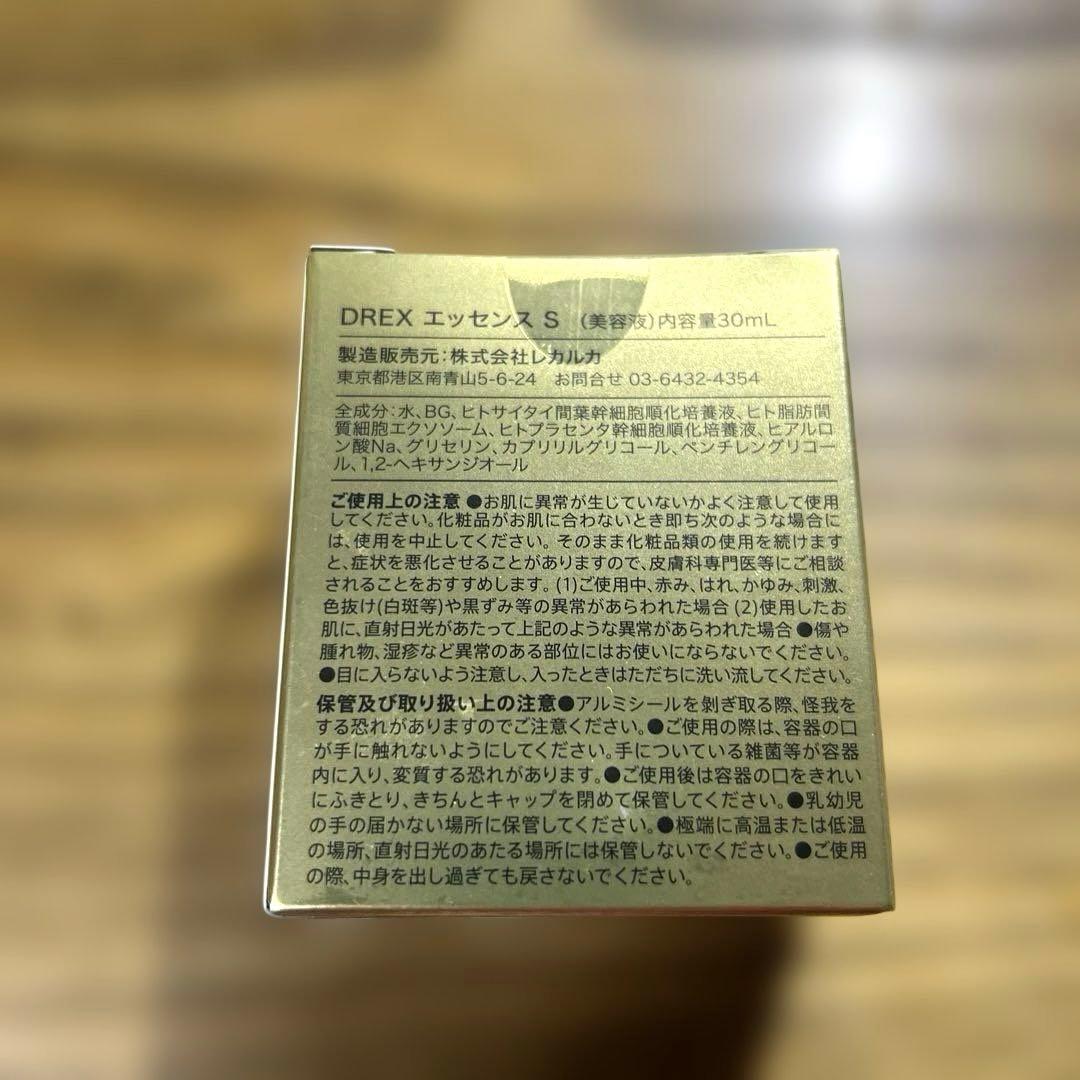 DREX エッセンス S （美容液）内容量30mL
製造販売元：株式会社レカルカ
東京都港区南青山5-6-24　お問合せ 03-6432-4354
全成分：水、BG、ヒトサイタイ間葉幹細胞順化培養液、ヒト脂肪間
質細胞エクソソーム、ヒトプラセンタ幹細胞順化培養液、ヒアルロ
ン酸Na、グリセリン、カプリリルグリコール、ペンチレングリコー
ル、1,2-ヘキサンジオール
ご使用上の注意 ●お肌に異常が生じていないかよく注意して使用
してください。化粧品がお肌に合わないとき即ち次のような場合に
は、使用を中止してください。そのまま化粧品類の使用を続けます
と、症状を悪化させることがありますので、皮膚科専門医等にご相談
されることをおすすめします。(1)ご使用中、赤み、はれ、かゆみ、刺激、
色抜け(白斑等)や黒ずみ等の異常があらわれた場合 (2)使用したお
肌に、直射日光があたって上記のような異常があらわれた場合 ●傷や
腫れ物、湿疹など異常のある部位にはお使いにならないでください。
●目に入らないよう注意し、入ったときはただちに洗い流してください。
保管及び取り扱い上の注意●アルミシールを剝ぎ取る際、怪我を
する恐れがありますのでご注意ください。●ご使用の際は、容器の口
が手に触れないようにしてください。手についている雑菌等が容器
内に入り、変質する恐れがあります。●ご使用後は容器の口をきれい
にふきとり、きちんとキャップを閉めて保管してください。●乳幼児
の手の届かない場所に保管してください。●極端に高温または低温
の場所、直射日光のあたる場所には保管しないでください。●ご使用
の際、中身を出し過ぎても戻さないでください。